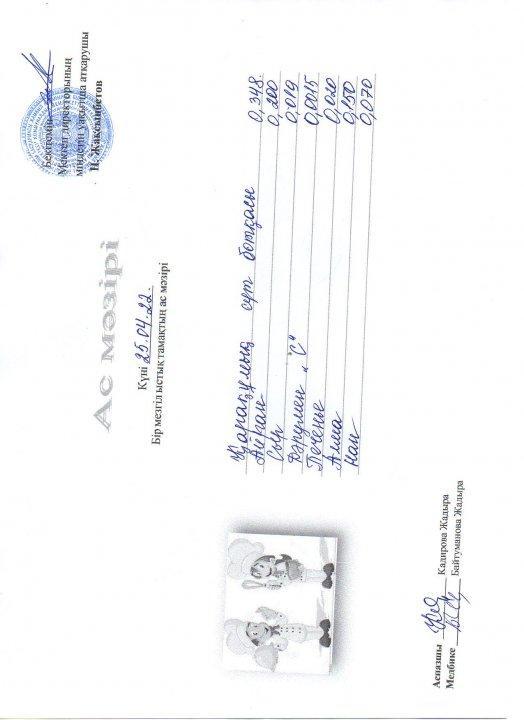 Бекітемін
Мектеп директорының
міндетін уақытша атқарушы
Н. Жақсыбетов
Ас мәзірі
Күні 25.04.22.
Бір мезгіл ыстық тамақтың ас мәзірі
Қарақұмық сүт ботқасы 0,348.
Айран 0,200
Сыр 0,019
Дәрумен „С" 0,0015
Печенье 0,020
Алма 0,150
Нан 0,070
Аспазшы Кадирова Жадыра
Медбике Байтуманова Жадыра